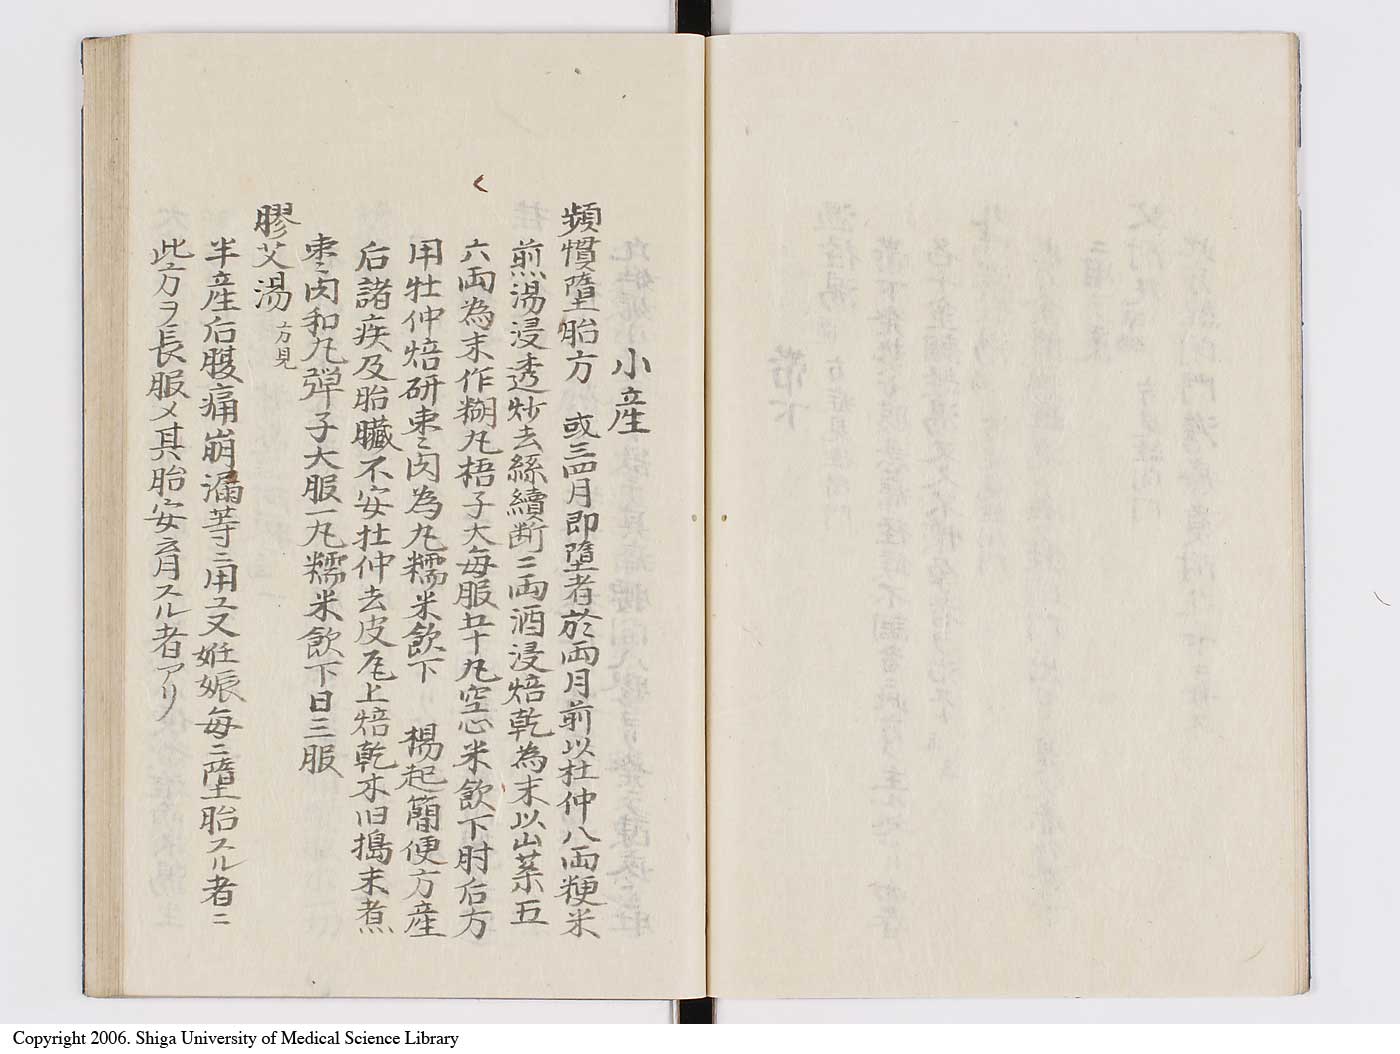 小産
頻慣墮胎方 或三四月即墮者於両月前以杜仲八両粳米
煎湯浸透炒去絲續断二両酒浸焙乾為末以山薬五
六両為末作糊丸梧子大毎服五十丸空心米飲下肘后方
用杜仲焙研棗肉為丸糯米飲下 楊起簡便方産
后諸疾及胎臓不安杜仲去皮瓦上焙乾木臼搗末煮
棗肉和丸弾子大服一丸糯米飲下日三服
膠艾湯 方見
半産后腹痛崩漏等ニ用ユ又妊娠毎ニ墮胎スル者ニ
此方ヲ長服乄其胎安育スル者アリ
Copyright 2006. Shiga University of Medical Science Library